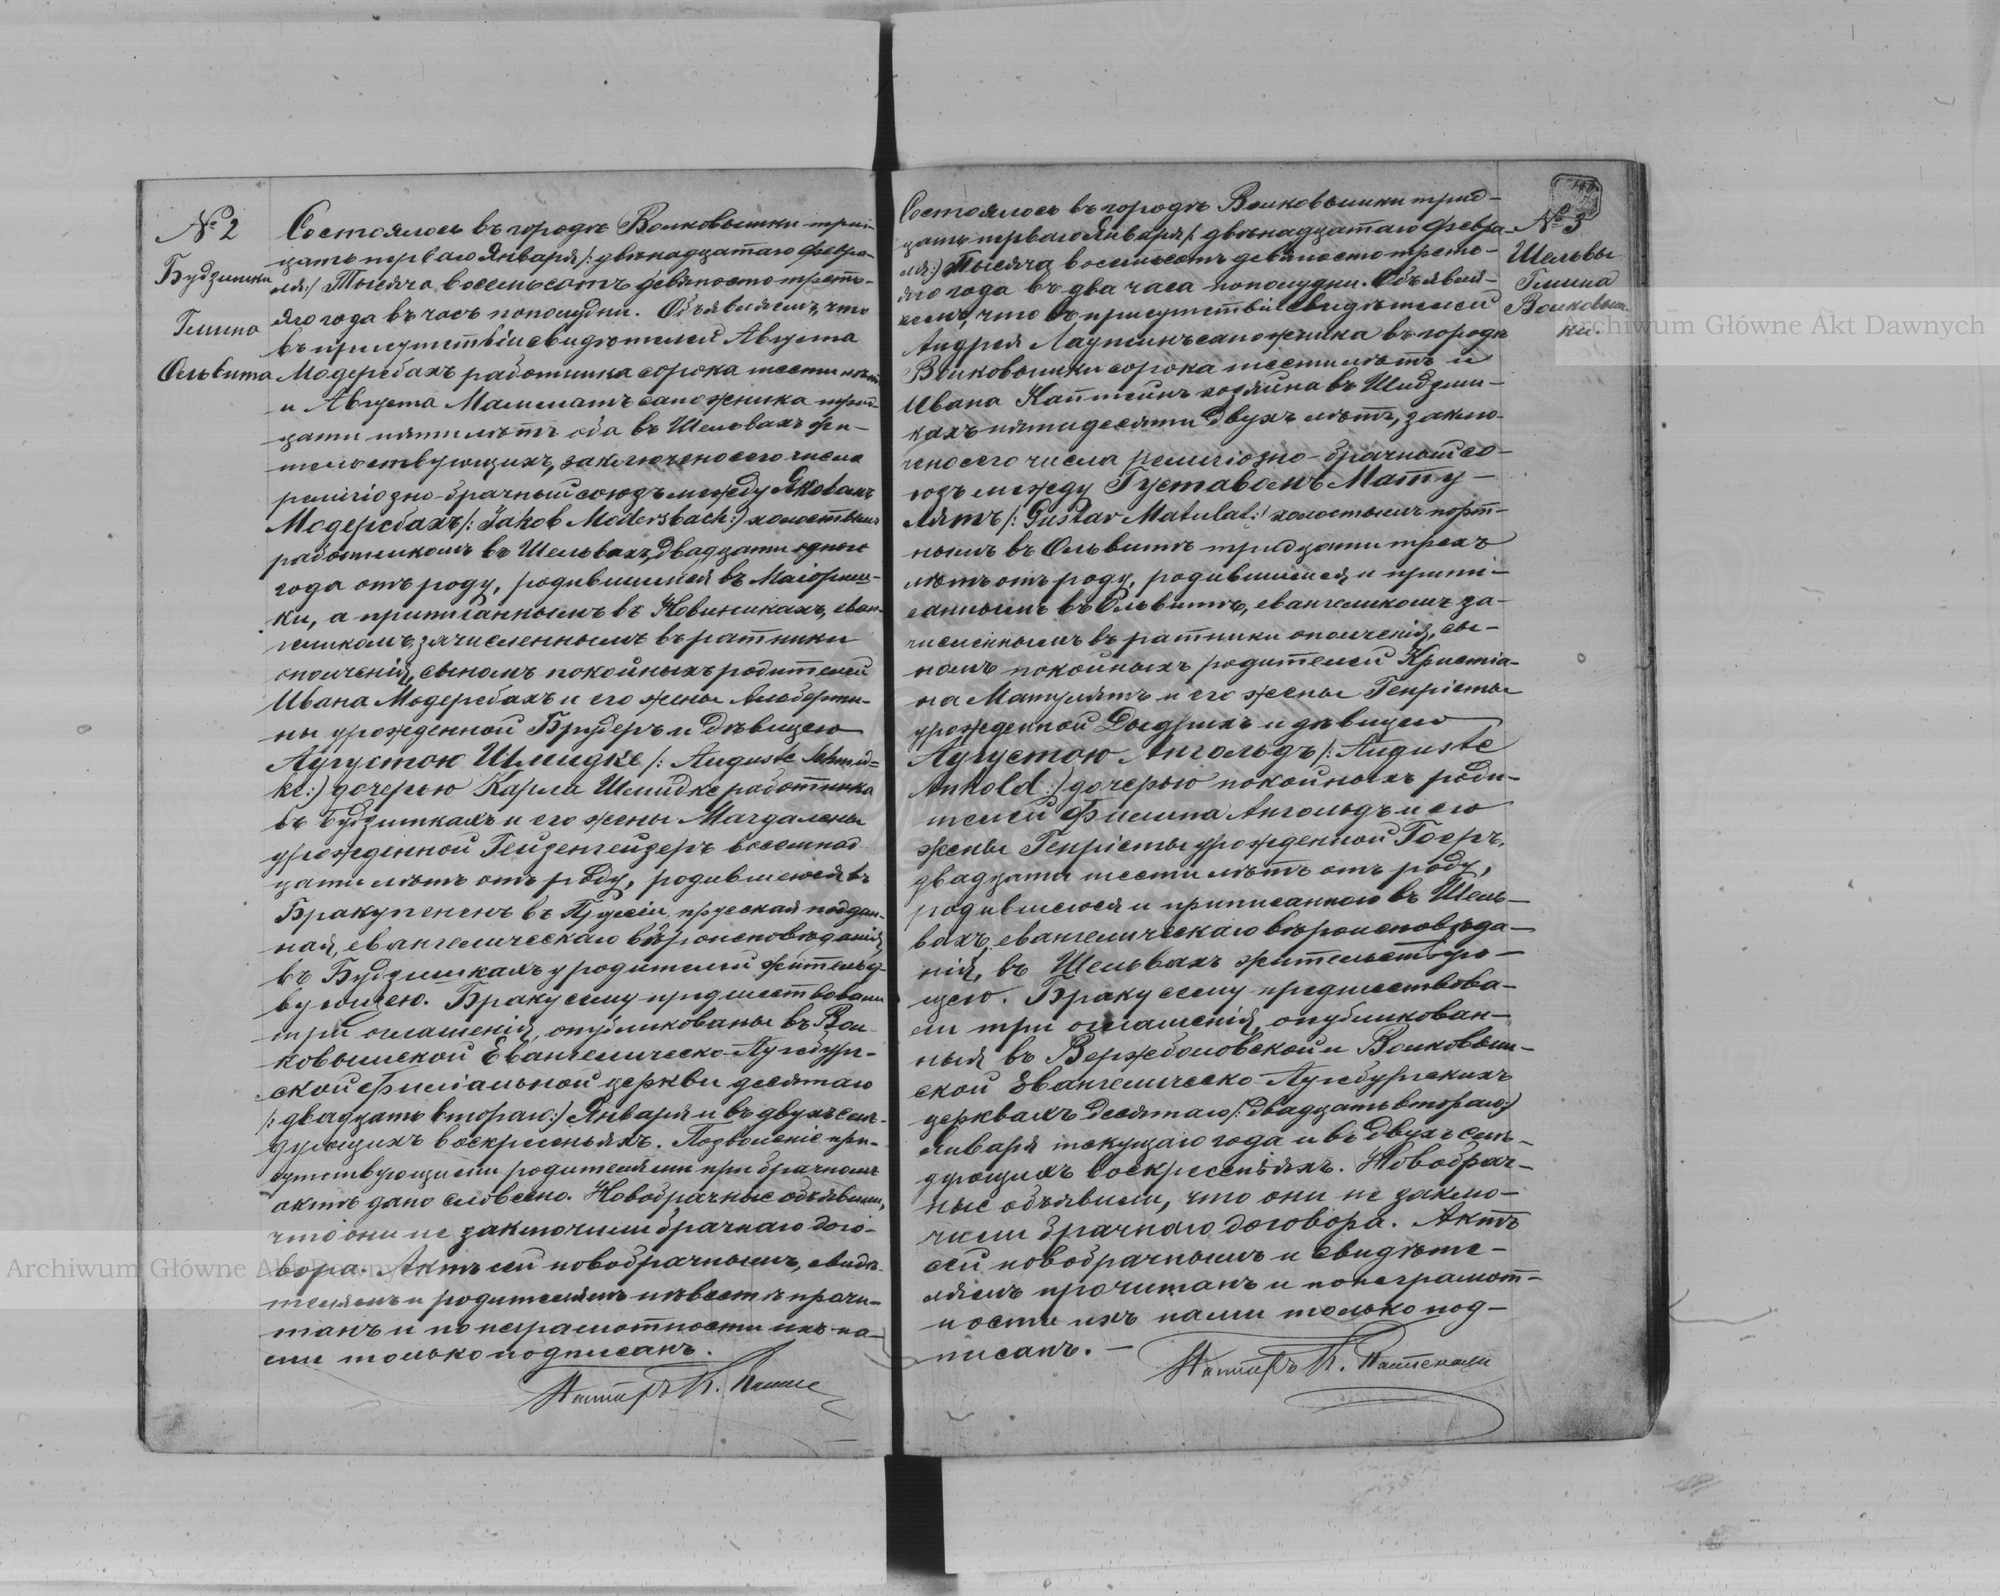 № 2
Будзишки
Гмина
Ольвита
Состоялось въ городѣ Волковышки трид-
цать перваго Января /: двѣнадцатаго Февра-
ля :/ Тысяча восемьсотъ девяносто треть-
яго года въ часъ пополудни. Объявляемъ, что
въ присутствіи свидѣтелей Августа
Модерсбахъ работника сорока шести лѣтъ
и Августа сапожника трид-
цати пяти лѣтъ оба въ Шельвахъ жи-
тельствующихъ, заключенъ сего числа
религіозно-брачный союзъ между Яковомъ
Модерсбахъ /: Jakob Modersbach :/ холостымъ
работникомъ въ Шельвахъ, двадцати одного
года отъ роду, родившимся въ Маіориш-
ки, а приписаннымъ въ Новиникахъ, еван-
геликомъ, зачисленнымъ въ ратники
ополченія, сыномъ покойныхъ родителей
Ивана Модерсбахъ и его жены Альберти-
ны урожденной Брудеръ и дѣвицею
Аугустою Шмидке /: Auguste Schmid=
ke :/ дочерью Карла Шмидке работника
въ Будзишкахъ и его жены Магдалены
урожденной Гейзенгейзеръ восемнад-
цати лѣтъ отъ роду, родившеюся въ
Бракупененъ въ Пруссіи, прусская поддан-
ная, евангелическаго вѣроисповѣданія,
въ Будзишкахъ у родителей жительст-
вующею. Браку сему предшествовали
три оглашенія, опубликованы въ Вол-
ковышской Евангелическо-Аугсбург-
ской Филіальной церкви десятаго
/: двадцать втораго :/ Января и въ двухъ слѣ-
дующихъ воскресеньяхъ. Позволеніе при-
сутствующими родителями при брачномъ
актѣ дано словесно. Новобрачные объявили,
что они не заключили брачнаго дого-
вора. Актъ сей новобрачнымъ, свидѣ-
телямъ и родителямъ невѣсты прочи-
танъ и по неграмотности ихъ на-
ми только подписанъ.
Пасторъ К.
№ 3
Шельвы
Гмина
Волковыш-
ки
Состоялось въ городѣ Волковышки трид-
цать перваго Января /: двѣнадцатаго Февра-
ля :/ Тысяча восемьсотъ девяносто треть-
яго года въ два часа пополудни. Объявля-
емъ, что въ присутствіи свидѣтелей
Андрея сапожника въ городѣ
Волковышки сорока шести лѣтъ и
Ивана хозяина въ
пятидесяти двухъ лѣтъ, заклю-
ченъ сего числа религіозно-брачный со-
юзъ между Густавомъ Мату-
лятъ /: Gustav Matulat :/ холостымъ порт-
нымъ въ Ольвитѣ тридцати трехъ
лѣтъ отъ роду, родившимся и припи-
саннымъ въ Ольвитѣ, евангеликомъ за-
численнымъ въ ратники ополченія, сы-
номъ покойныхъ родителей Кристіа-
на Матулятъ и его жены Генріеты
урожденной и дѣвицею
Аугустою Ангольдъ /: Auguste
Anhold :/ дочерью покойныхъ роди-
телей Филипа Ангольдъ и его
жены Генріеты урожденной Гоеръ,
двадцати шести лѣтъ отъ роду,
родившеюся и приписанною въ Шель-
вахъ, евангелическаго вѣроисповѣда-
нія, въ Шельвахъ жительствую-
щею. Браку сему предшествова-
ли три оглашенія, опубликован-
ныя въ Вержболовской и Волковыш-
ской Евангелическо-Аугсбургскихъ
церквахъ десятаго /: двадцать втораго :/
января текущаго года и въ двухъ слѣ-
дующихъ воскресеньяхъ. Новобрач-
ные объявили, что они не заклю-
чили брачнаго договора. Актъ
сей новобрачнымъ и свидѣте-
лямъ прочитанъ и по неграмот-
ности ихъ нами только под-
писанъ. —
Пасторъ К.
Archiwum Główne Akt Dawnych
Archiwum Główne Akt Dawnych